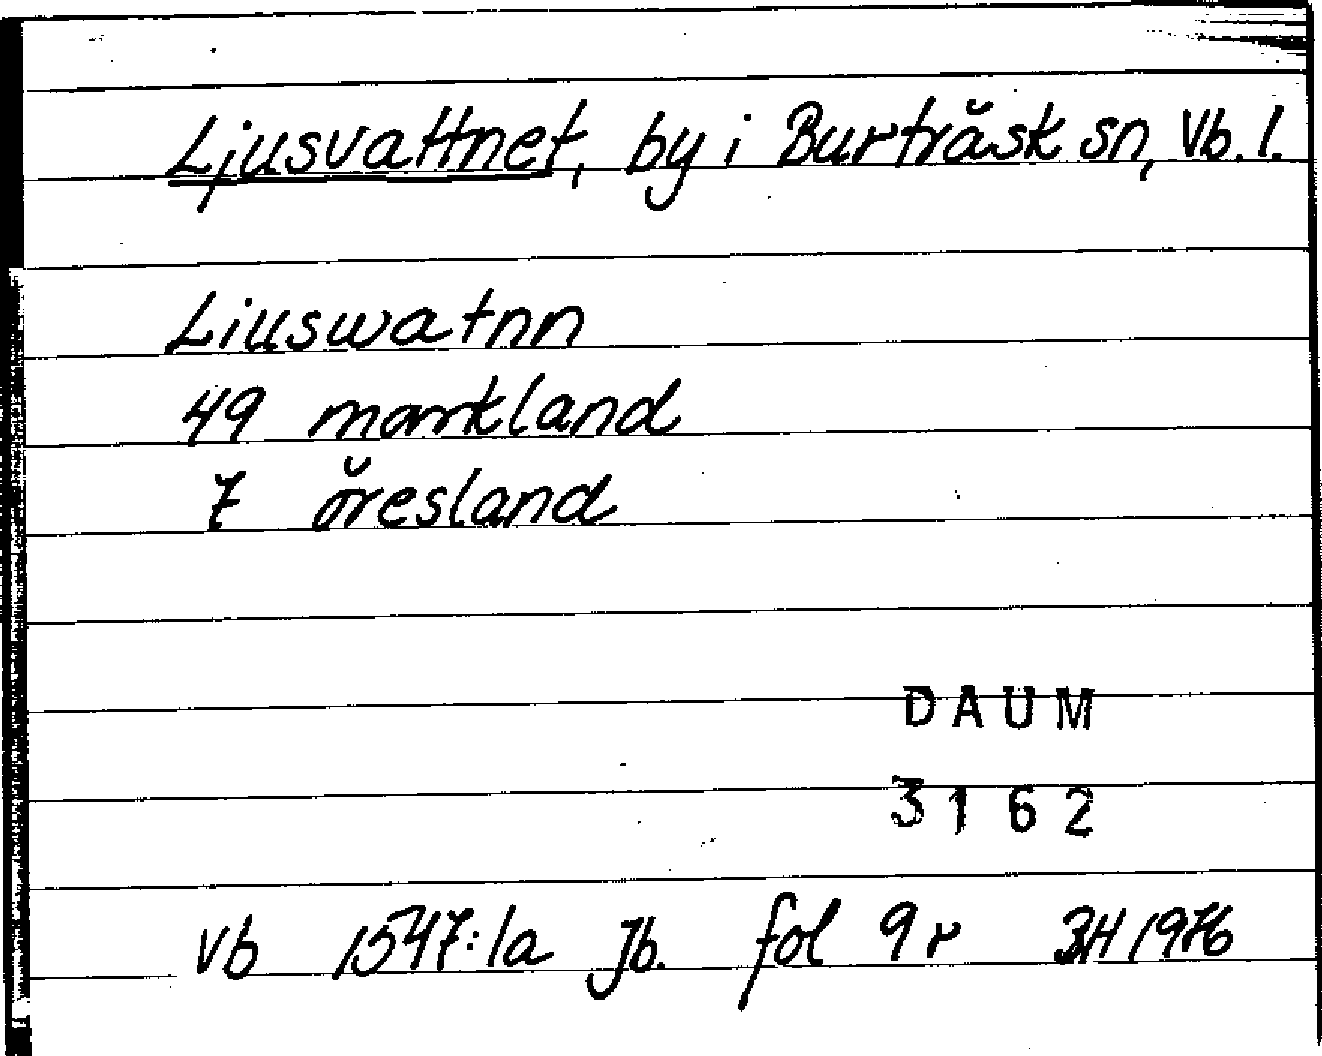 Ljusvattnet, by i Burträsk sn, Vb. l.
Liuswatnn
49 markland
7 öresland
DAUM
3162
Vb 1547:1a Jb. fol 9 r 1976